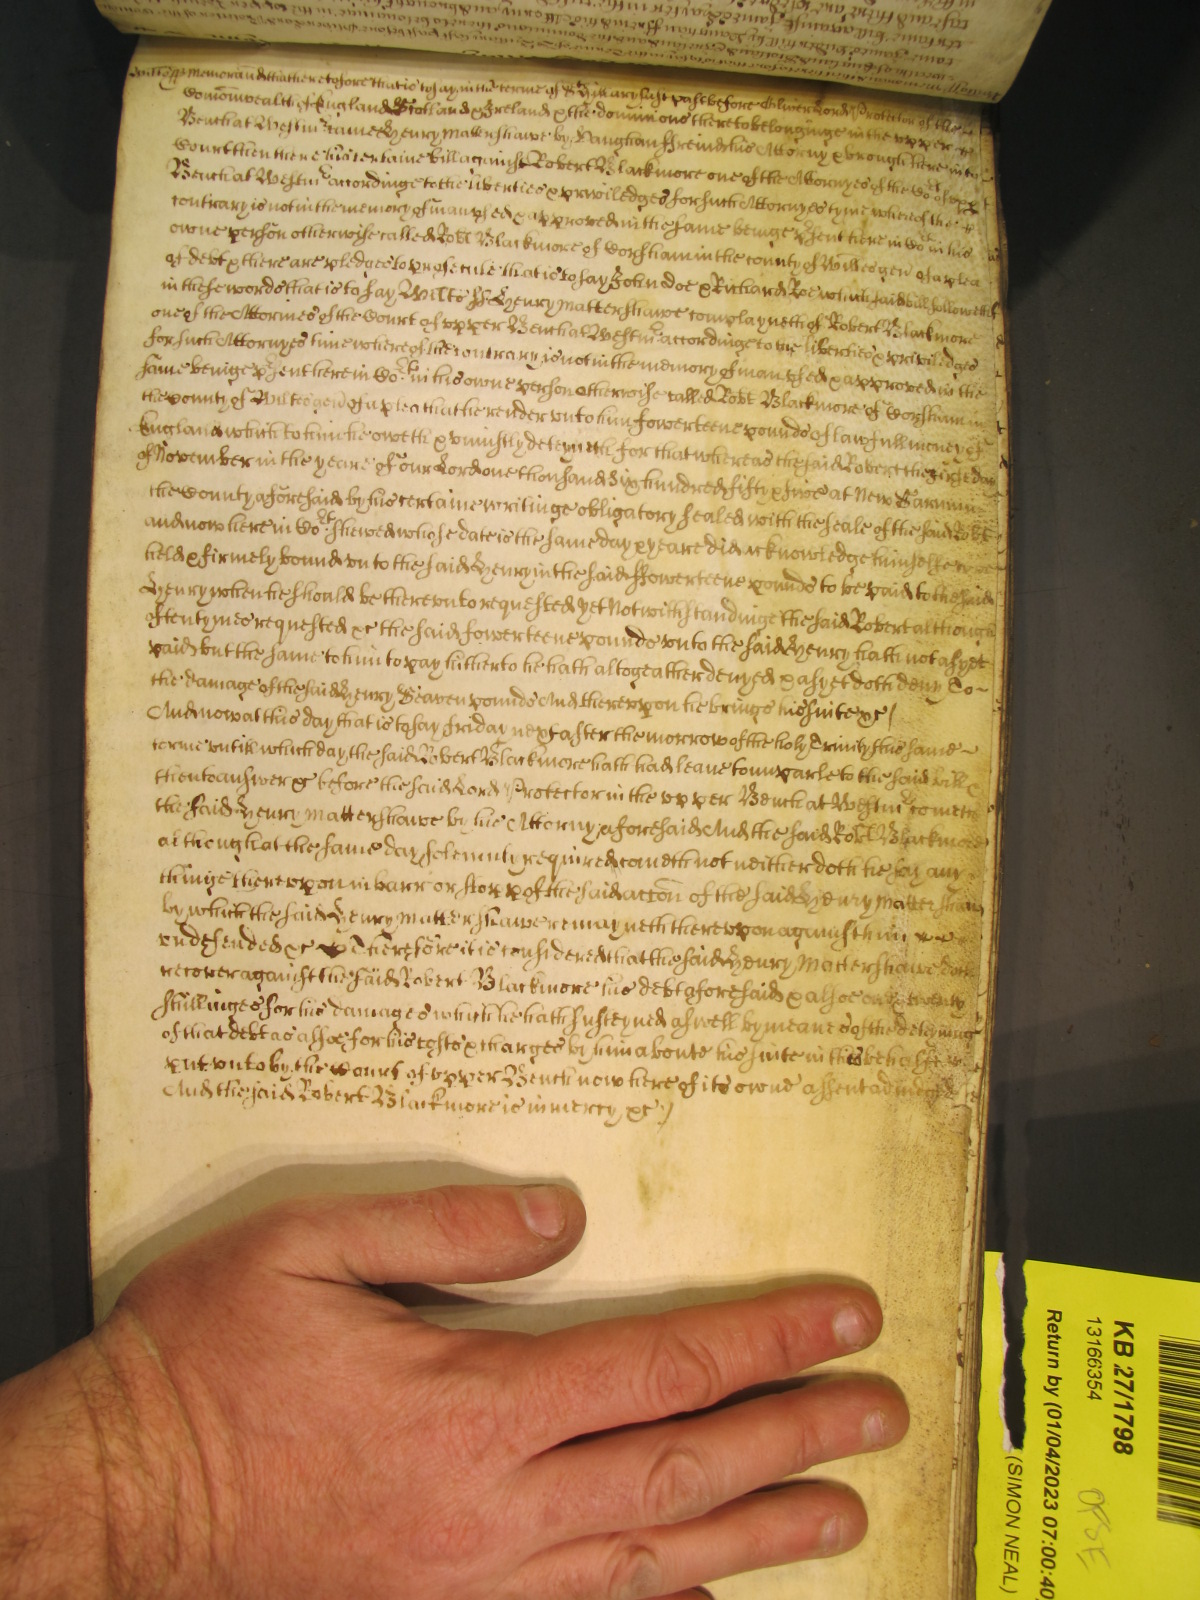 Wiltes ss Memorand that heretofore that is to say in the terme of St Hillary last past before Oliver Lord Protector of the
Comonwealth of England Scotland & Ireland & the dominions thereto belonginge in the upper
Bench at Westmr came Henry Mattershawe by Vaughan his Attorny & brought here into
Court then there his certaine bill against Robert Blackmore one of the Attornyes of the Cort of upp
Bench at Westmr accordinge to the liberties & priviledges for such Attornyes tyme whereof the
contrary is not in the memory of man used & approved in the same beinge psent here in Cort in his
owne person otherwise called Robt Blackmore of Corsham in the county of Wiltes gen of a plea
of debt & there are pledges to prosecute that is to say John doe & Richard Roe which said bill followeth
in these words that is to say Wiltes ss Henry Mattershawe complayneth of Robert Blackmore
one of the Attornies of the Court of upper Bench at Westmr accordinge to the liberties & priviledges
for such Attornyes time whereof the contrary is not in the memory of man used & approved in the
same beinge psent here in Cort in his owne person otherwise called Robt Blackmore of Corsham in
the county of Wiltes gen of a plea that he render unto him fowerteene pounds of lawfull money of
England which to him he oweth & uniustly deteyneth for that whereas the said Robert the day
of November in the yeare of our Lord one thousand six hundred fifty & five at New Sarum in
the County aforesaid by his certaine writinge obligatory sealed with the seale of the said Robt
and now here in Cort shewed whose date is the same day & yeare did acknowledge himselfe to be
held & firmely bound unto the said Henry in the said fowerteene pounds to be paid to the said
Henry when he should be thereunto requested yet Notwithstandinge the said Robert although
oftentymes requested &c the said fowerteene pounds unto the said Henry hath not as yet
paid but the same to him to pay hitherto he hath altogeather denyed & as yet doth deny To
the damage of the said Henry Seaven pounds And thereupon he brings his suite &c
And now at this day that is to say friday next after the morrow of the holy Trinity this same
terme untill which day the said Robert Blackmore hath had leave to imparle to the said bill &
then to answer &c before the said Lord Protector in the upper Bench at Westmr cometh
the said Henry Mattershawe by his Attorny aforesaid And the said Robt Blackmore
although at the same day solemnly required cometh not neither doth he say any
thinge thereupon in barr or stopp of the said accon of the said Henry Mattershawe
by which the said Henry Mattershawe remayneth thereupon against him
undefended &c Therefore it is considered that the said Henry Mattershawe doe
recover against the said Robert Blackmore his debt aforesaid & alsoe twenty
shillinges for his damages which he hath susteyned aswell by meanes of the deteyninge
of that debt as alsoe for his costs & charges by him aboute his suite in this behalfe
put unto by the Court of upper Bench now here of its owne assent adiudged
And the said Robert Blackmore is in mercy &c
KB 27/1798
13166354
Return by (01/04/2023 07:00:40
(SIMON NEAL)